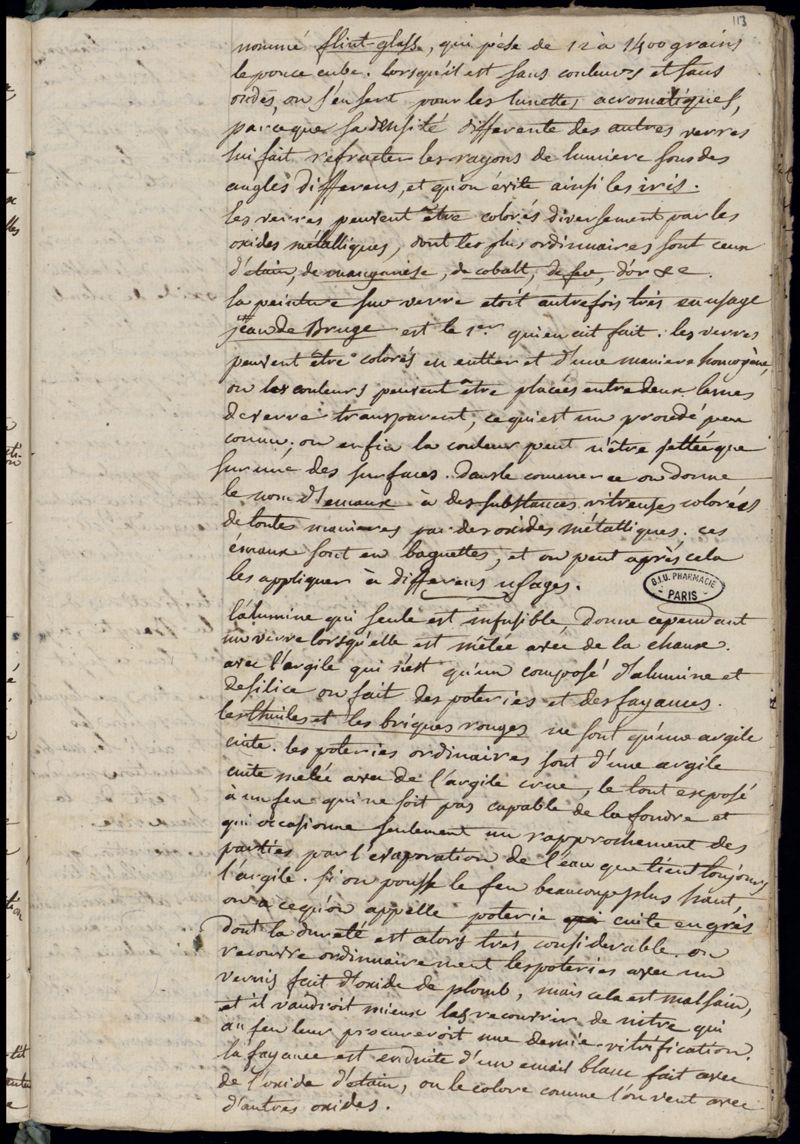 113
nommé flint-glasse, qui pèse de 12 à 1400 grains
le pouce cube. lorsqu'il est sans couleurs et sans
ondes, on s'en sert pour les lunettes acromatiques,
parceque sa densité differente des autres verres
lui fait refracter les rayons de lumiere sous des
angles differens, et qu'on évite ainsi les iris.
les verres peuvent être colorés diversement par les
oxides métalliques, dont les plus ordinnaires sont ceux
d'étain, de manganèse, de cobalt, de fer, d'or &c.
la peinture sur verre etoit autrefois très en usage
jean de Bruge est le 1er qui en ait fait. les verres
peuvent être colorés en entier et d'une maniere homogène,
ou les couleurs peuvent être placées entre deux lames
de verre transparent, ce qui est un procédé peu
connu. ou enfin la couleur peut n'être jettée que
sur une des surfaces. Dans le commerce on donne
le nom d'emaux à des substances vitreuses colorées
de toutes manieres par des oxides métalliques. ces
émaux sont en baguettes, et on peut après cela
les appliquer à differens usages.
B.I.U. PHARMACIE
PARIS
l'alumine qui seule est infusible, donne cependant
un verre lorsqu'elle est mêlée avec de la chaux.
avec l'argile qui n'est qu'un composé d'alumine et
de silice on fait des poteries et des fayances.
les thuiles et les briques rouges ne sont qu'une argile
cuite. les poteries ordinaires sont d'une argile
cuite melée avec de l'argile crue, le tout exposé
à un feu qui ne soit pas capable de la fondre et
qui occasionne seulement un rapprochement des
parties par l'evaporation de l'eau que tient toujours
l'argile. si on pousse le feu beaucoup plus haut,
on a ce qu'on appelle poterie cuite en grès
dont la dureté est alors très considerable. on
recouvre ordinairement les poteries avec un
vernis fait d'oxide de plomb, mais cela est mal sain,
et il vaudroit mieux les recouvrir de nitre qui
au feu leur procureroit une demie-vitrification.
la fayance est enduite d'un email blanc fait avec
de l'oxide d'étain, on le colore comme l'on veut avec
d'autres oxides.